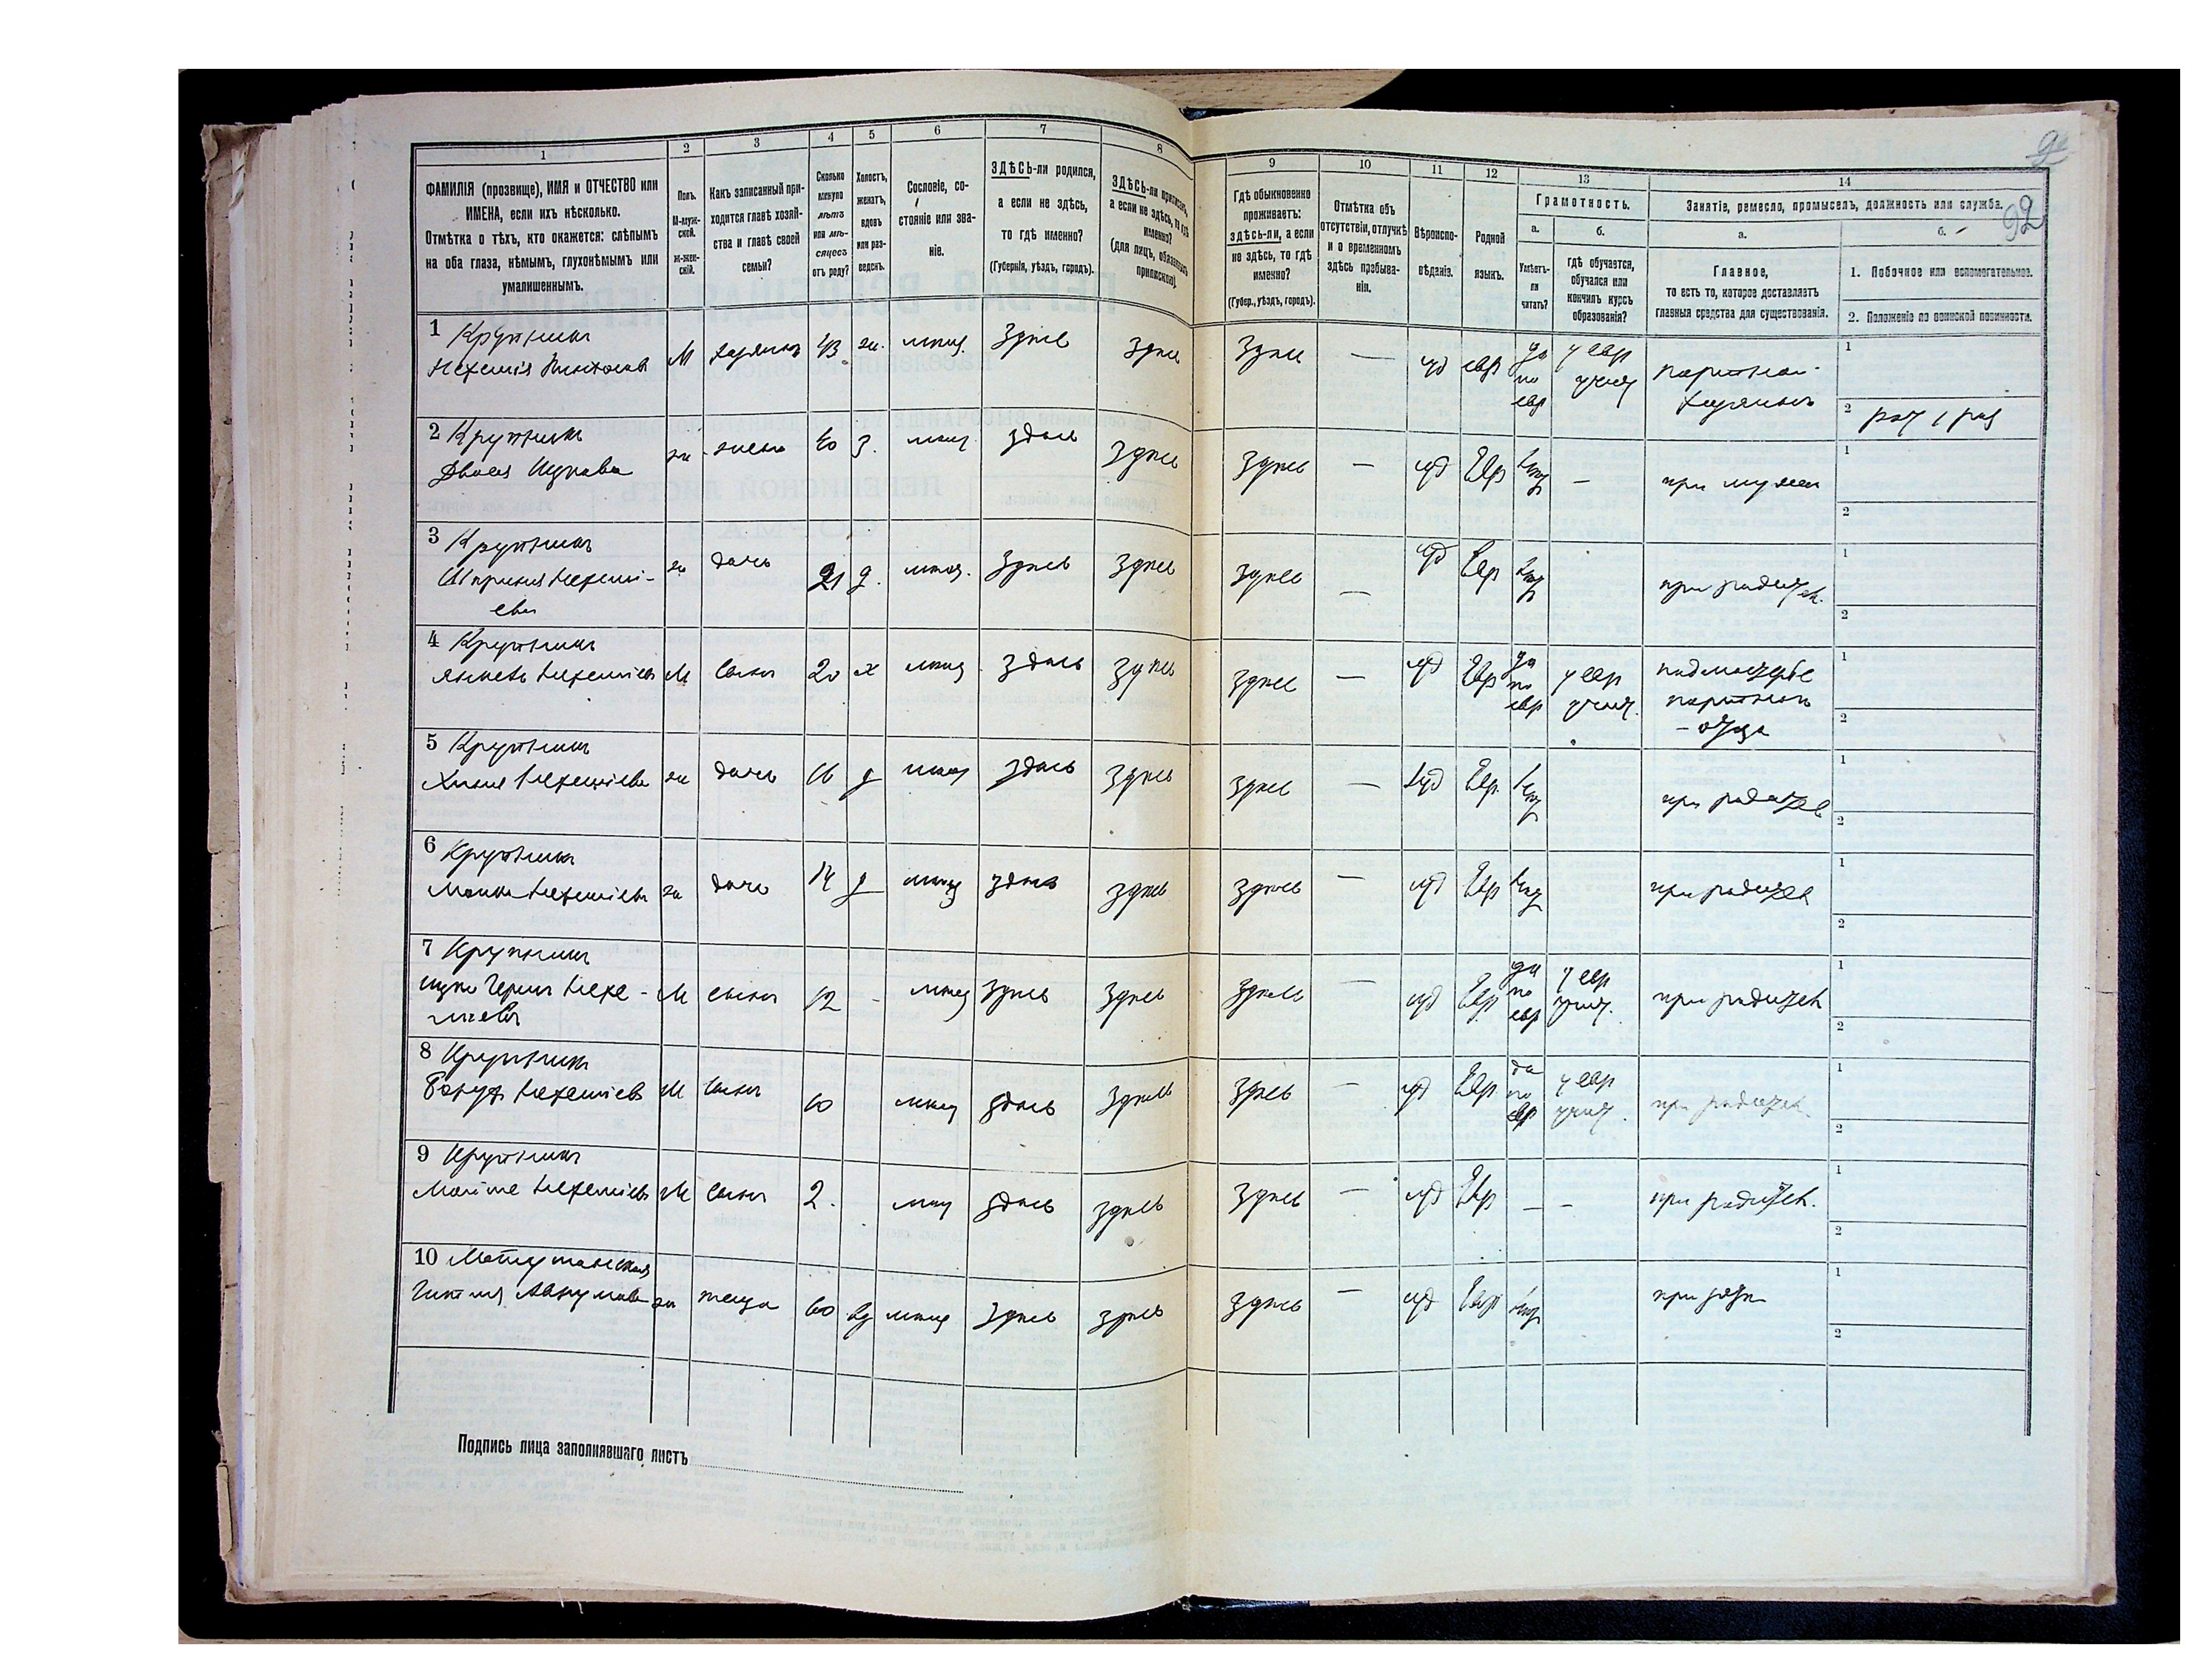 1
2
3
4
5
6
7
8
ФАМИЛІЯ (прозвище), ИМЯ и ОТЧЕСТВО или
ИМЕНА, если ихъ нѣсколько.
Отмѣтка о тѣхъ, кто окажется: слѣпымъ
на оба глаза, нѣмымъ, глухонѣмымъ или
умалишеннымъ.
Полъ.
М-муж-
ской.
Ж-жен-
скій.
Какъ записанный при-
ходится главѣ хозяй-
ства и главѣ своей
семьи?
Сколько
минуло
лѣтъ
или мѣ-
сяцевъ
отъ роду?
Холостъ,
женатъ,
вдовъ
или раз-
веденъ.
Сословіе, со-
стояніе или зва-
ніе.
ЗДѢСЬ-ли родился,
а если не здѣсь,
то гдѣ именно?
(Губернія, уѣздъ, городъ).
ЗДѢСЬ-ли приписанъ,
а если не здѣсь, то гдѣ
именно?
(для лицъ, обязанныхъ
припиской).
9
10
11
12
13
14
92
Гдѣ обыкновенно
проживаетъ:
здѣсь-ли, а если
не здѣсь, то гдѣ
именно?
(Губер., уѣздъ, городъ).
Отмѣтка объ
отсутствіи, отлучкѣ
и о временномъ
здѣсь пребыва-
ніи.
Вѣроиспо-
вѣданіе.
Родной
языкъ.
Грамотность.
а.
б.
Умѣетъ-
ли
читать?
гдѣ обучается,
обучался или
кончилъ курсъ
образованія?
Занятіе, ремесло, промыселъ, должность или служба.
а.
б.
Главное,
то есть то, которое доставляетъ
главныя средства для существованія.
1. Побочное или вспомогательное.
2. Положеніе по воинской повинности.
1 Крупникъ
Нехемія
М хозяинъ 43 ж. мѣщ. здѣсь здѣсь здѣсь — іуд евр да по евр у евр учит портной хозяинъ
1
2
2 Крупникъ
Двося
ж жена 40 з. мѣщ здѣсь здѣсь здѣсь — іуд Евр нѣтъ — при мужѣ
1
2
3 Крупникъ
Шпринця Нехемі-
ева
ж дочь 21 д. мѣщ. здѣсь здѣсь здѣсь — іуд Евр нѣтъ при родит.
1
2
4 Крупникъ
Янкель Нехеміевъ М сынъ 20 х мѣщ здѣсь здѣсь здѣсь — іуд Евр да по евр у евр учит. подмастерье
отца
1
2
5 Крупникъ
Нехеміева ж дочь 16 д мѣщ здѣсь здѣсь здѣсь — іуд Евр. нѣтъ при родител
1
2
6 Крупникъ
Нехеміева ж дочь 14 д мѣщ здѣсь здѣсь здѣсь — іуд Евр нѣтъ при родител
1
2
7 Крупникъ
Нехе-
міевъ
М сынъ 12 - мѣщ здѣсь здѣсь здѣсь — іуд Евр да по евр у евр учит. при родител
1
2
8 Крупникъ
Борухъ Нехеміевъ М сынъ 10 мѣщ здѣсь здѣсь здѣсь — іуд Евр да по евр у евр учит. при родител
1
2
9 Крупникъ
Нехеміевъ М сынъ 2. мѣщ здѣсь здѣсь здѣсь — іуд Евр — — при родител.
1
2
10
ж теща 60 вд мѣщ здѣсь здѣсь здѣсь — іуд Евр нѣтъ при зятѣ
1
2
Подпись лица заполнявшаго листъ